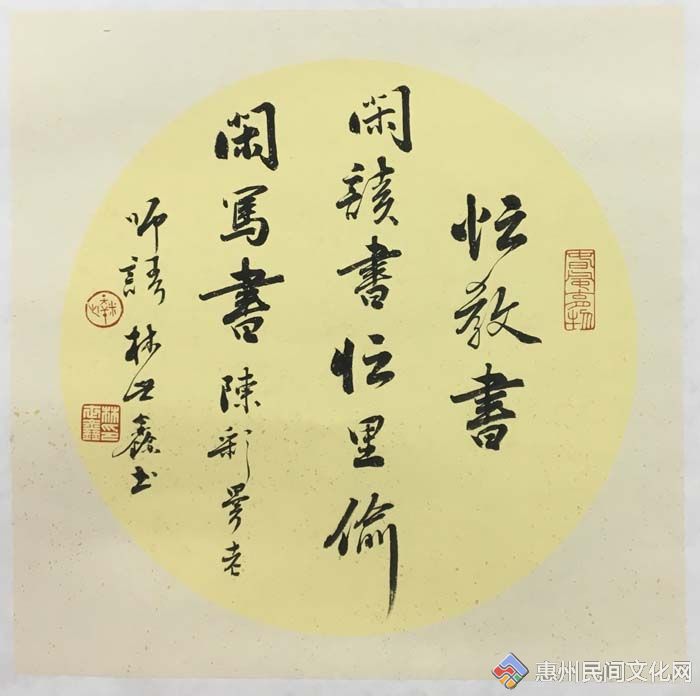 忙教書
閑讀書忙里偷
閑寫書 陳彩 老
師語 林世鑫书
惠州民间文化网